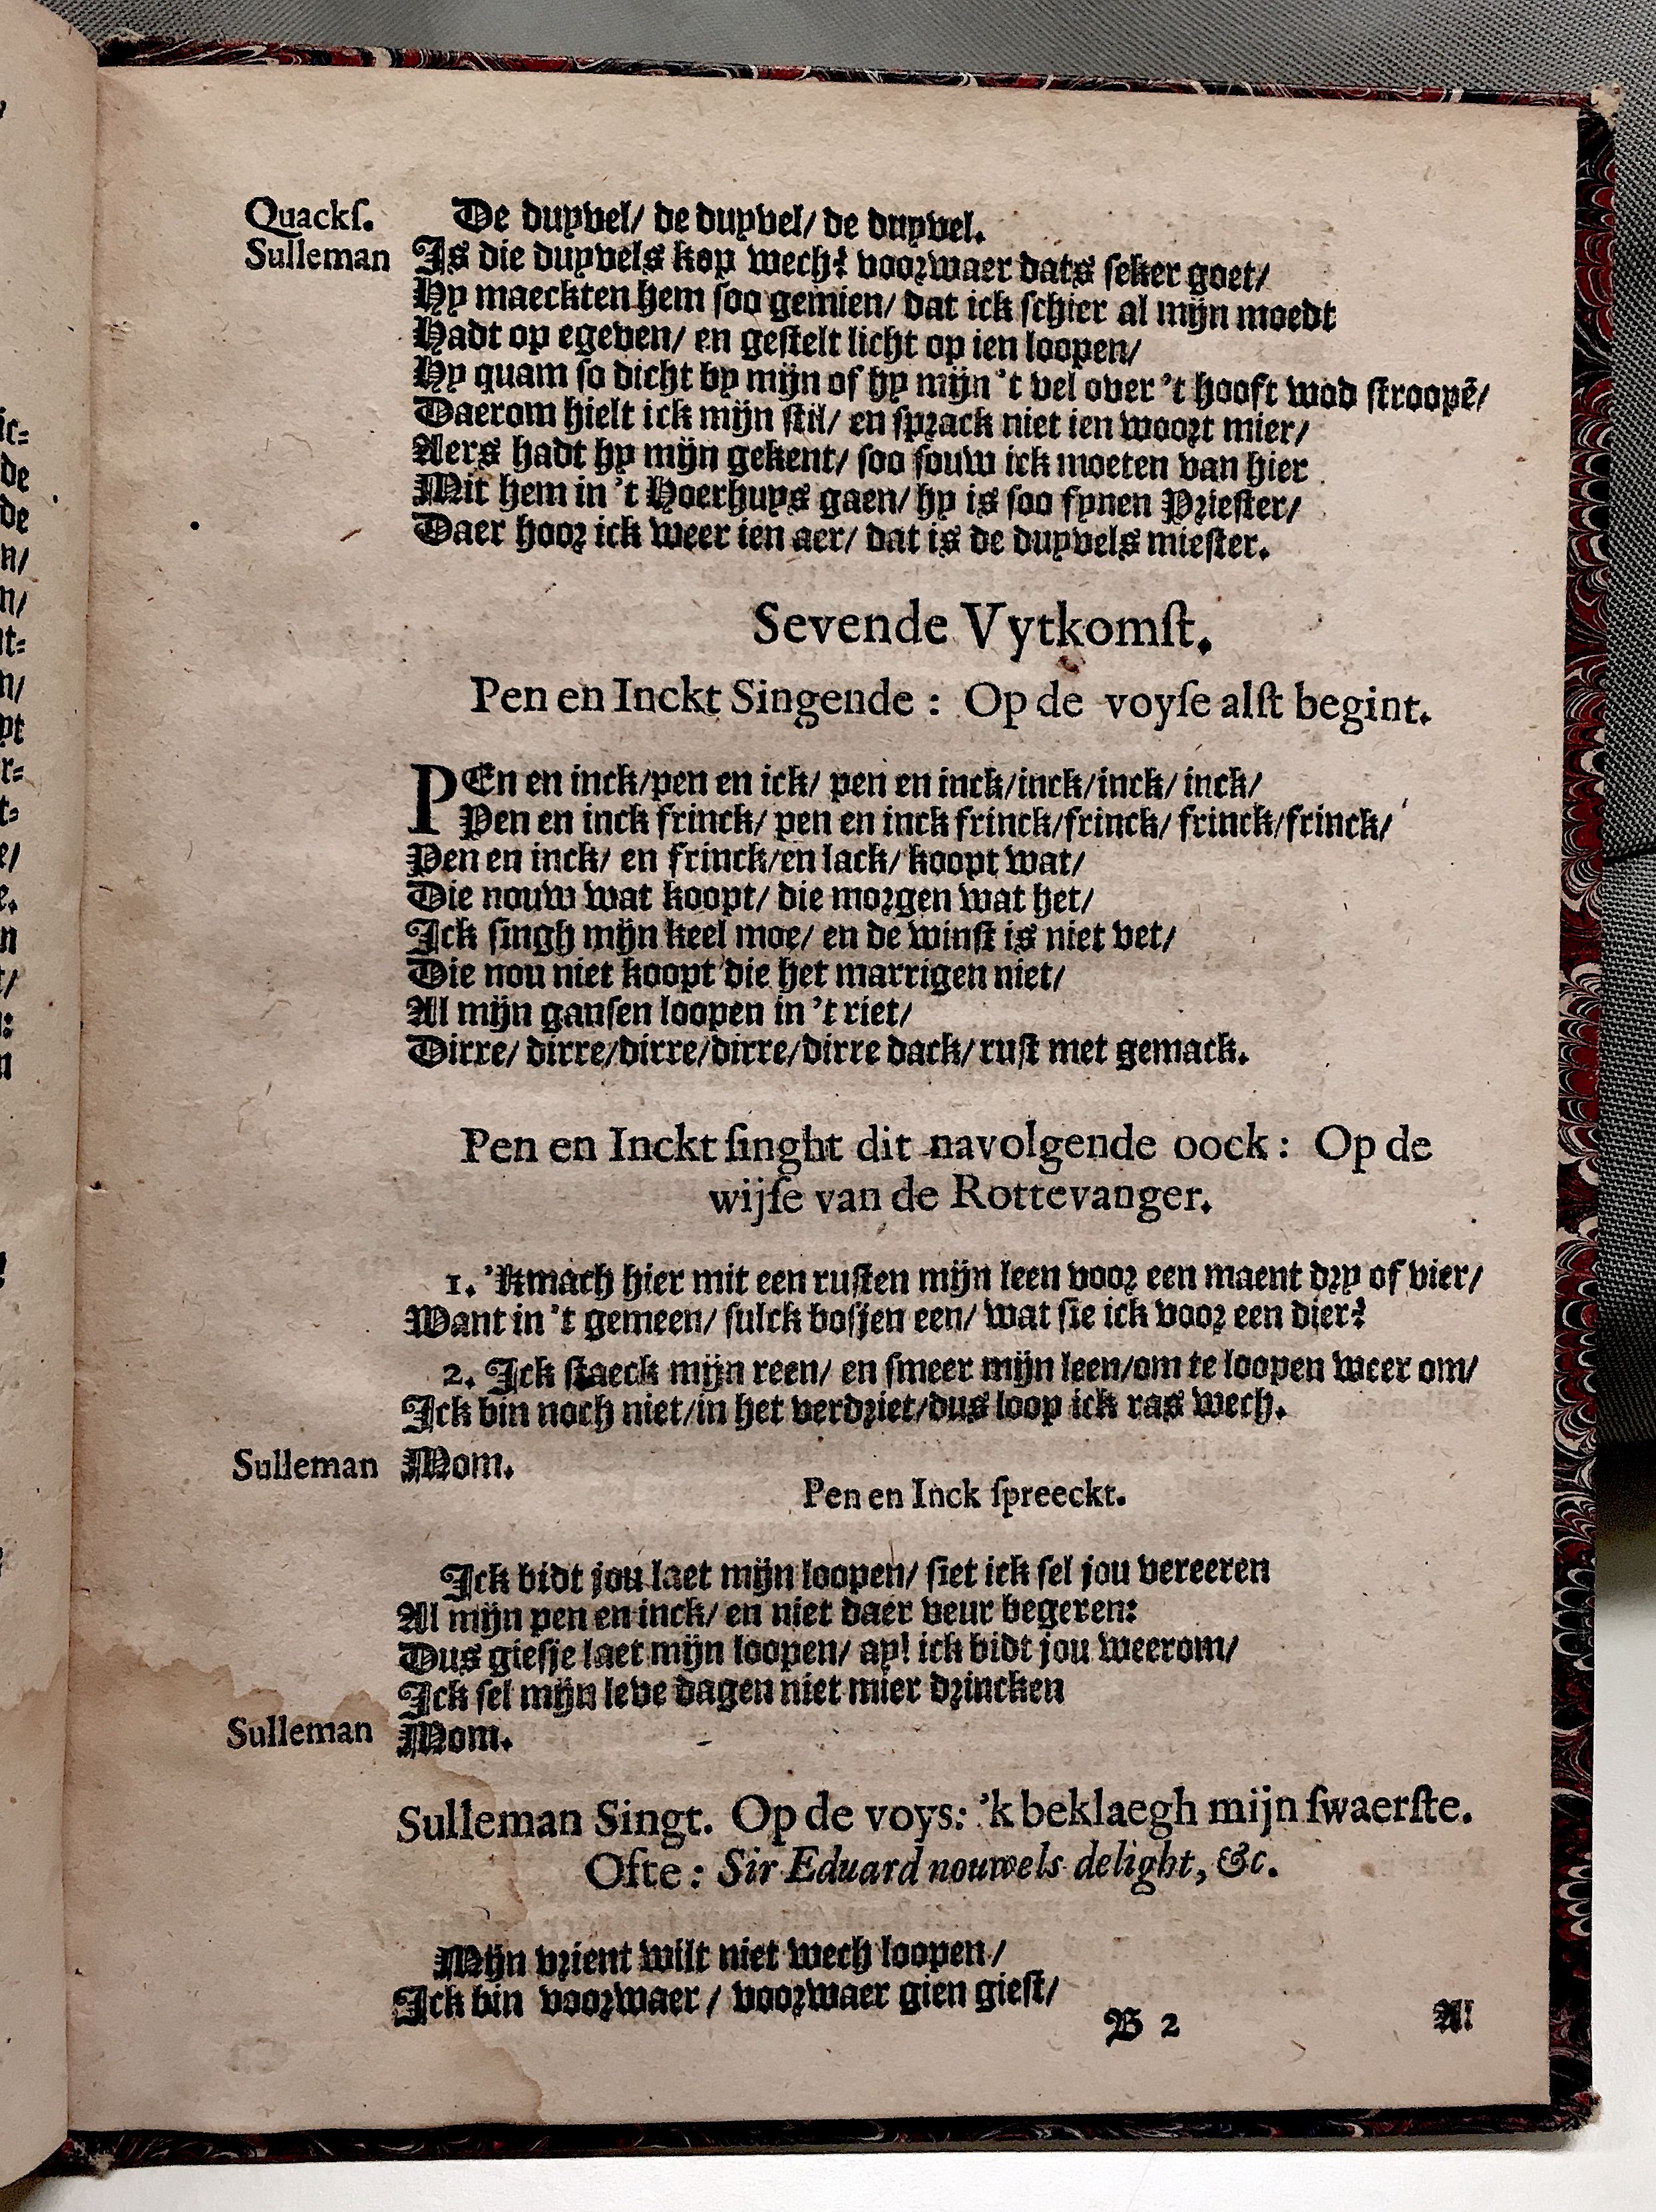 Quackſ. De duyvel/ de duyvel/ de duyvel.
Sulleman Is die duyvels kop wech? voorwaer dats ſeker goet/
Hy maeckten hem ſoo gemien/ dat ick ſchier al mijn moedt
Hadt op egeven/ en geſtelt licht op ien loopen/
Hy quam ſo dicht by mijn of hy mijn 't vel over 't hooft wod ſtroopẽ/
Daerom hielt ick mijn ſtil/ en ſprack niet ien woort mier/
Aers hadt hy mijn gekent/ ſoo ſouw ick moeten van hier
Mit hem in 't Hoerhuys gaen/ hy is ſoo fynen Prieſter/
Daer hoor ick weer ien aer/ dat is de duyvels mieſter.
Sevende Vytkomſt.
Pen en Inckt Singende: Op de voyſe alſt begint.
PEn en inck/pen en ick/ pen en inck/inck/inck/ inck/
Pen en inck frinck/ pen en inck frinck/frinck/ frinck/frinck/
Pen en inck/ en frinck/en lack/ koopt wat/
Die nouw wat koopt/ die morgen wat het/
Ick ſingh mijn keel moe/ en de winſt is niet vet/
Die nou niet koopt die het marrigen niet/
Al mijn ganſen loopen in 't riet/
Dirre/ dirre/dirre/dirre/dirre dack/ ruſt met gemack.
Pen en Inckt ſinght dit navolgende oock: Op de
wijſe van de Rottevanger.
1. 'Kmach hier mit een ruſten mijn leen voor een maent dry of vier/
Want in 't gemeen/ ſulck boſjen een/ wat ſie ick voor een dier?
2. Ick ſtaeck mijn reen/ en ſmeer mijn leen/om te loopen weer om/
Ick bin noch niet/in het verdriet/dus loop ick ras wech.
Sulleman Mom.
Pen en Inck ſpreeckt.
Ick bidt jou laet mijn loopen/ ſiet ick ſel jou vereeren
Al mijn pen en inck/ en niet daer veur begeren:
Dus gieſje laet mijn loopen/ ay! ick bidt jou weerom/
Ick ſel mijn leve dagen niet mier drincken
Sulleman Mom.
Sulleman Singt. Op de voys: 'k beklaegh mijn ſwaerſte.
Ofte: Sir Eduard nouwels delight, &c.
Mijn vrient wilt niet wech loopen/
Ick bin voorwaer/ voorwaer gien gieſt/
B 2 Al